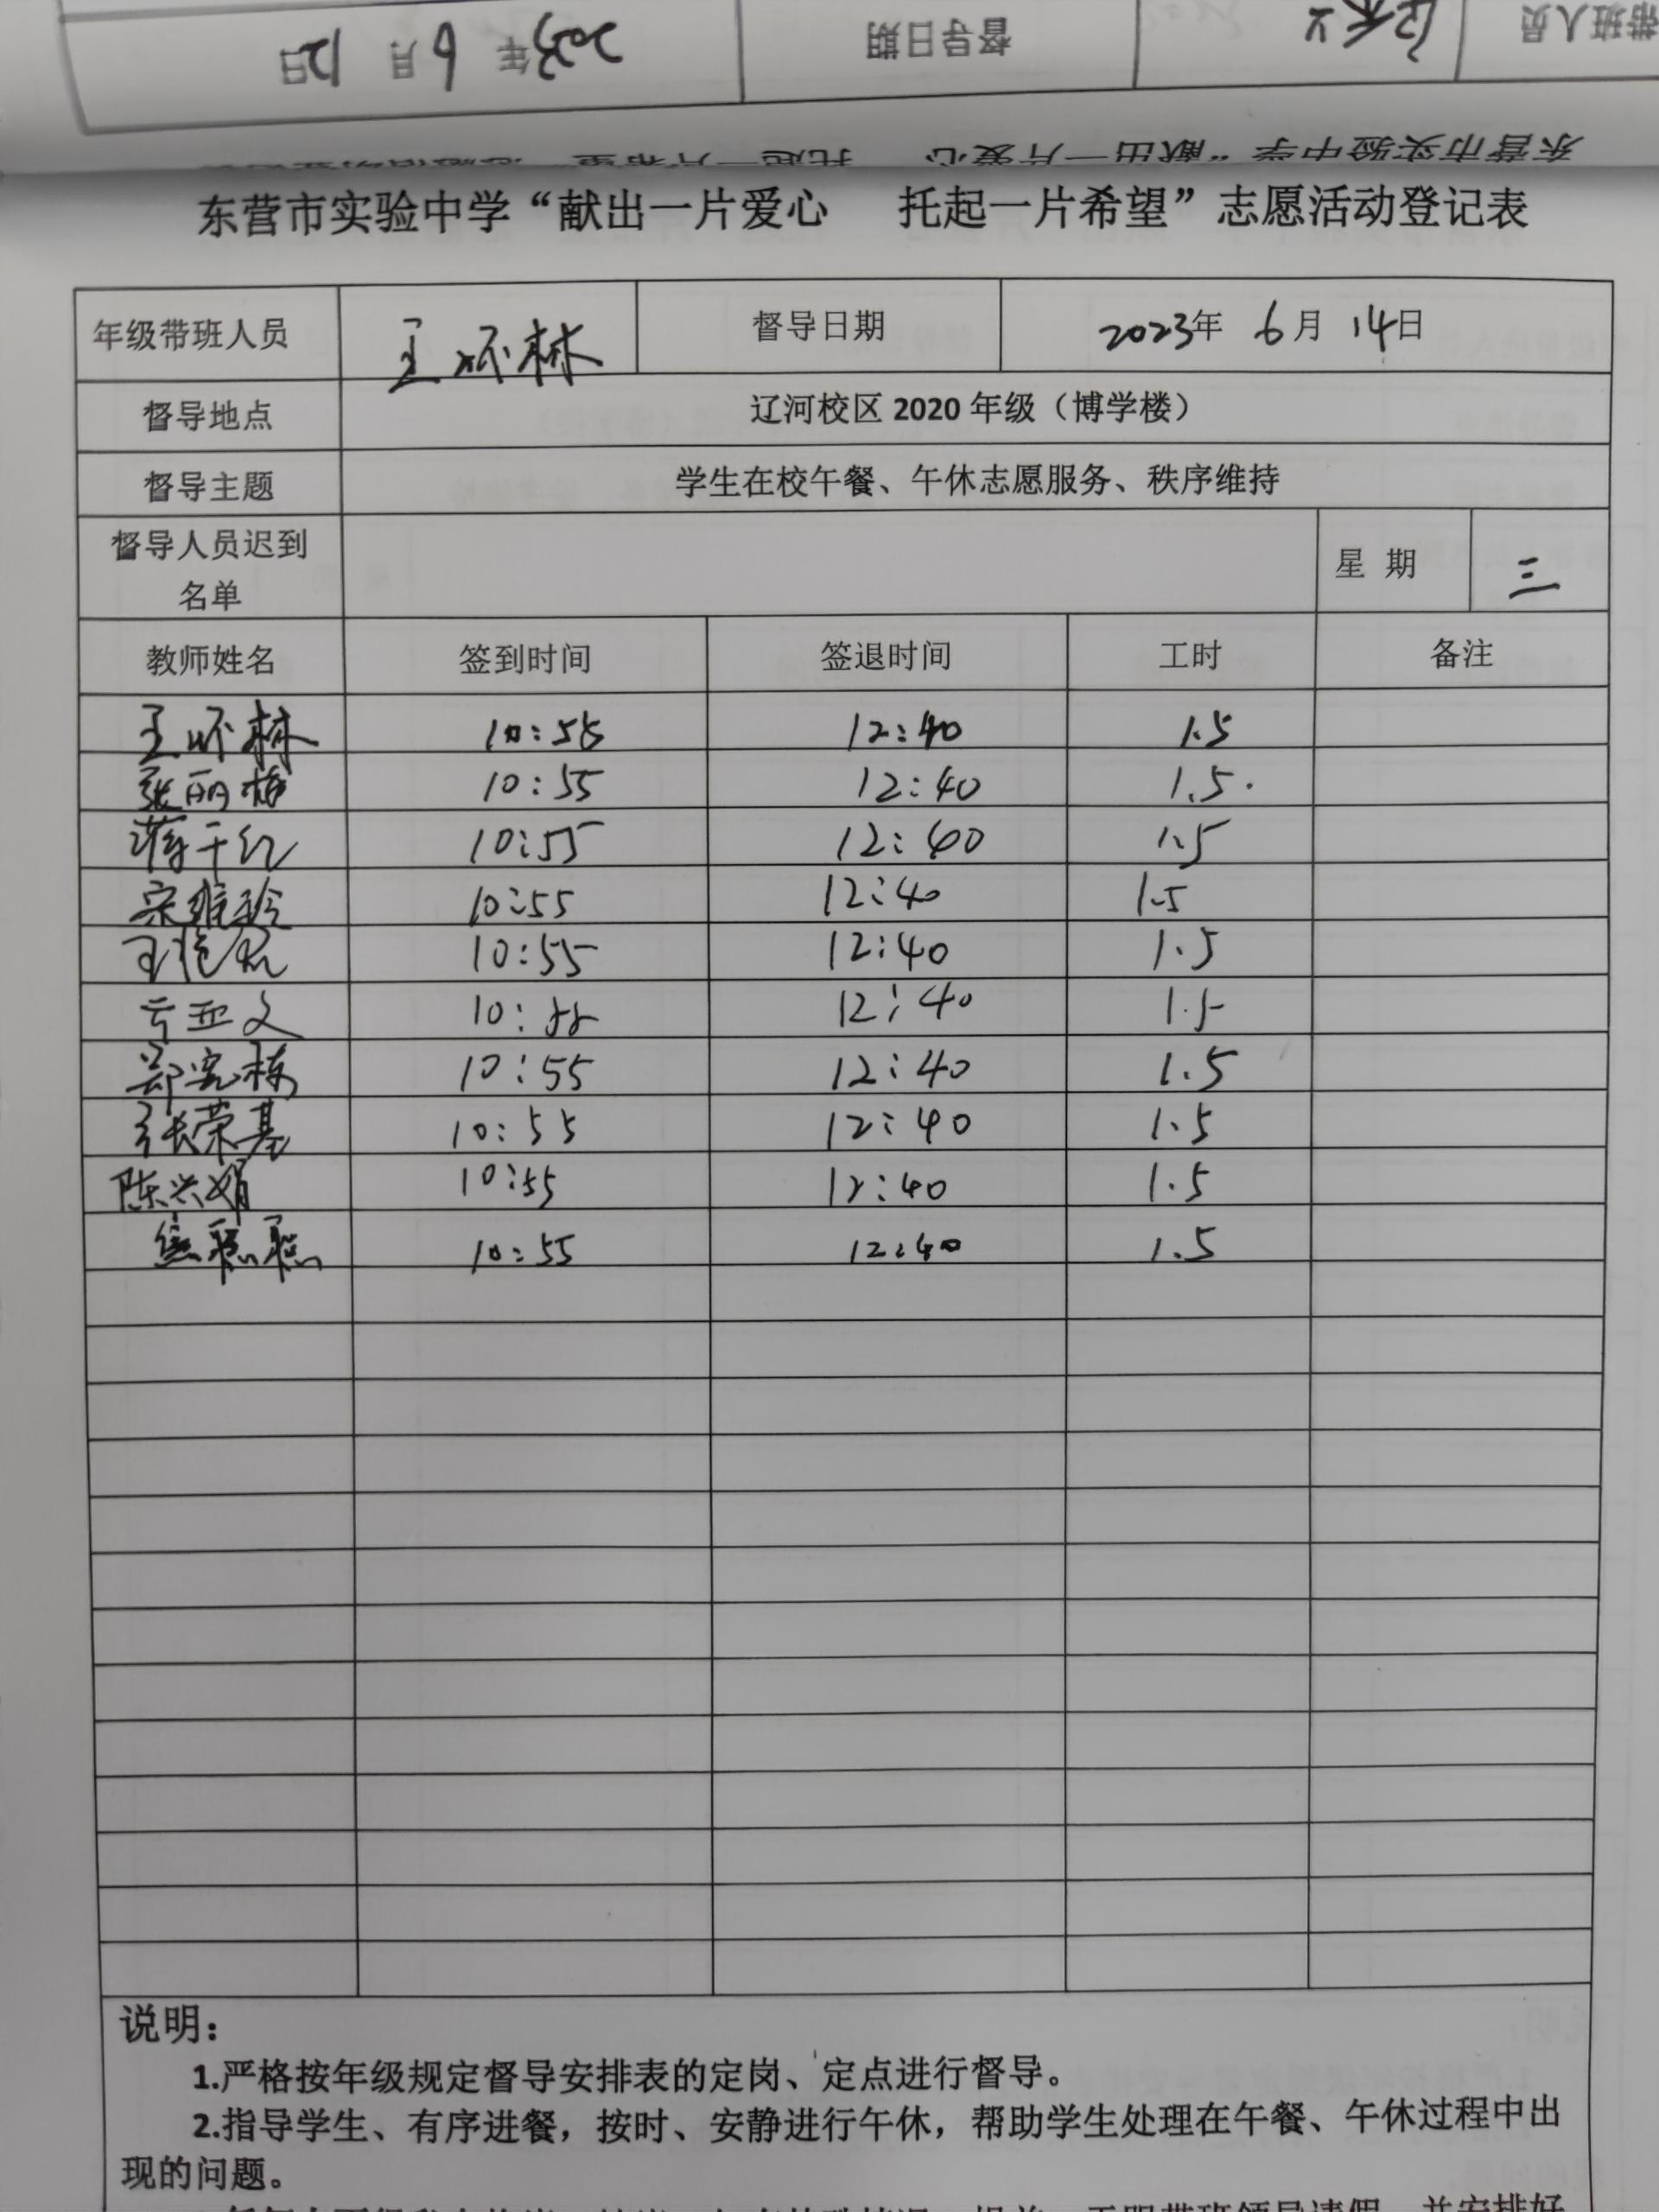 督导日期
2023年 6月 12日
带班人员
东营市实验中学“献出一片爱心 托起一片希望”志愿活动登记表
年级带班人员 王怀林 督导日期 2023年 6月 14日
督导地点 辽河校区 2020 年级（博学楼）
督导主题 学生在校午餐、午休志愿服务、秩序维持
督导人员迟到
名单
星 期 三
教师姓名 签到时间 签退时间 工时 备注
王怀林 10:55 12:40 1.5
张丽梅 10:55 12:40 1.5.
蒋千红 10:55 12:40 1.5
宋维玲 10:55 12:40 1.5
10:55 12:40 1.5
亚文 10:55 12:40 1.5
郑宪栋 10:55 12:40 1.5
张荣基 10:55 12:40 1.5
陈兴娟 10:55 12:40 1.5
焦聪聪 10:55 12:40 1.5
说明：
1.严格按年级规定督导安排表的定岗、定点进行督导。
2.指导学生、有序进餐，按时、安静进行午休，帮助学生处理在午餐、午休过程中出
现的问题。